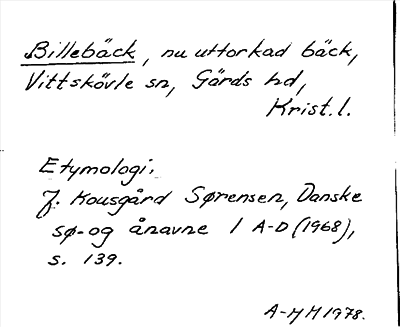 Billebäck, nu uttorkad bäck,
Vittskövle sn, Gärds hd,
Krist. l.
Etymologi:
J. Kousgård Sørensen, Danske
sø- og ånavne 1 A-D (1968),
s. 139.
A-M H 1978.